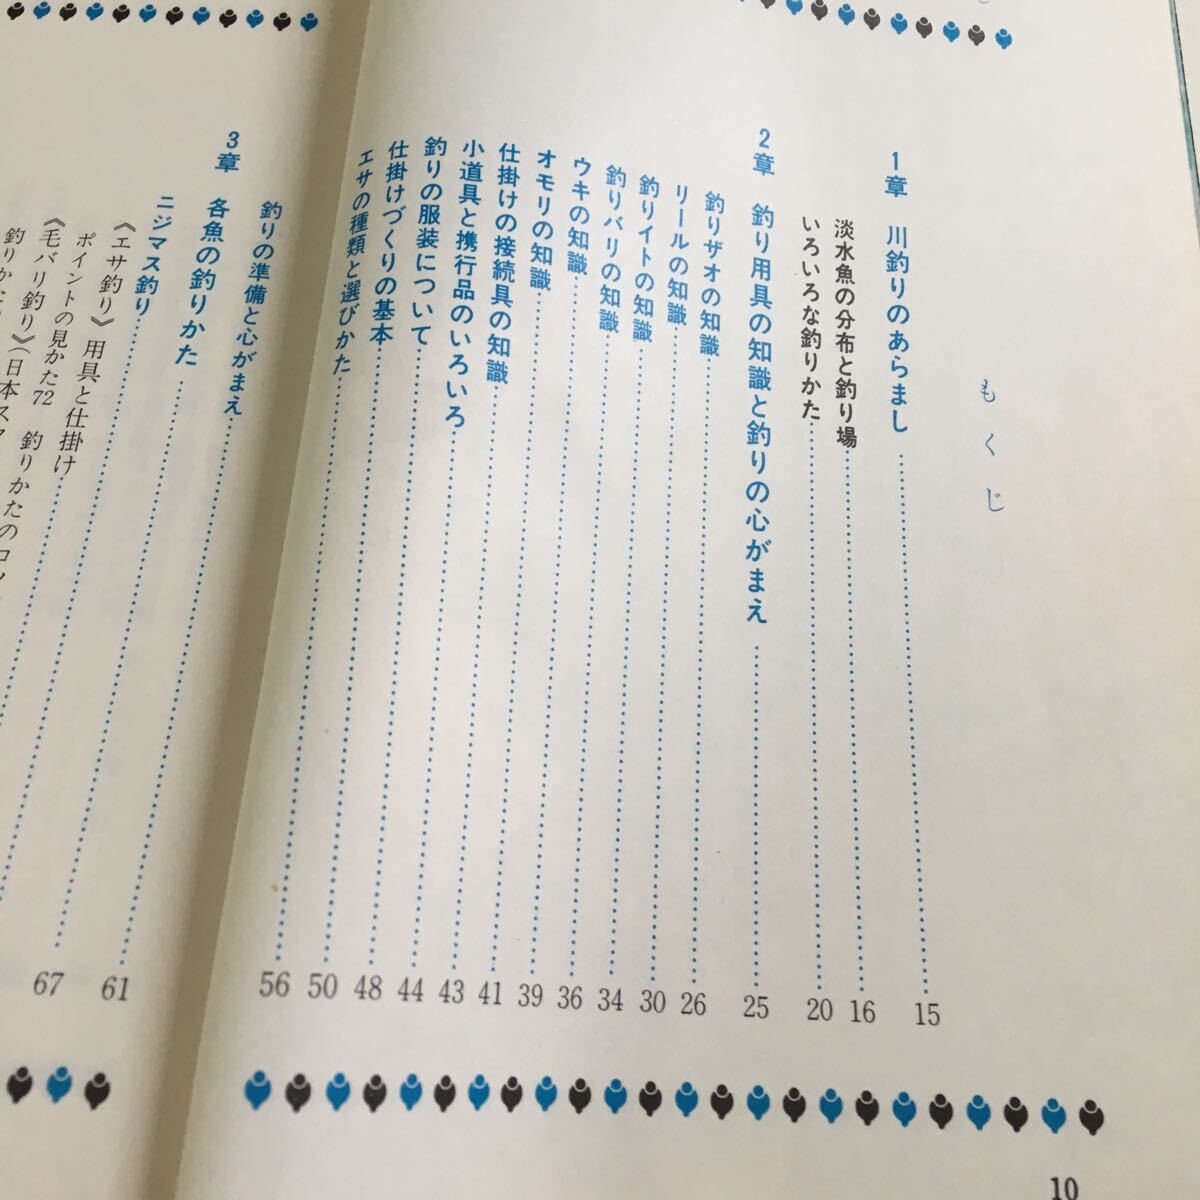 もくじ
1章 川釣りのあらまし……15
淡水魚の分布と釣り場……16
いろいろな釣りかた……20
2章 釣り用具の知識と釣りの心がまえ……25
釣りザオの知識……26
リールの知識……30
釣りイトの知識……34
釣りバリの知識……36
ウキの知識……39
オモリの知識……41
仕掛けの接続具の知識……43
小道具と携行品のいろいろ……44
釣りの服装について……48
仕掛けづくりの基本……50
エサの種類と選びかた……56
釣りの準備と心がまえ……61
3章 各魚の釣りかた……67
ニジマス釣り……
《エサ釣り》用具と仕掛け……
ポイントの見かた72 釣りかたのコツ
《毛バリ釣り》(日本ス
釣りかた
10